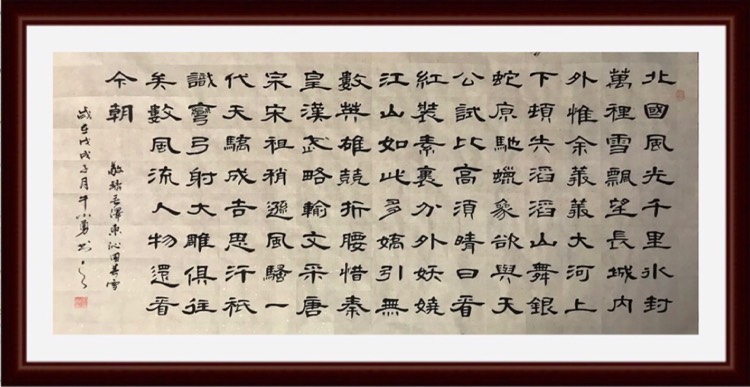 北國風光千里冰封
萬裡雪飄望長城內
外惟余莽莽大河上
下頓失滔滔山舞銀
蛇原馳蠟象欲與天
公試比高須晴日看
紅裝素裹分外妖嬈
江山如此多嬌引無
數英雄競折腰惜秦
皇漢武略輸文采唐
宗宋祖稍遜風騷一
代天驕成吉思汗祇
識彎弓射大雕俱往
矣數風流人物還看
今朝
敬錄毛澤東沁園春雪
歲在戊戌子月牛小勇書